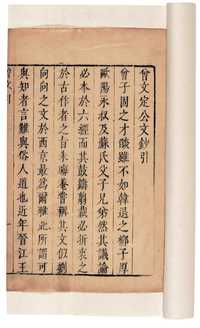 曾文定公文鈔引
曾子固之才燄雖不如韓退之栁子厚
歐陽永叔及蘇氏父子兄弟然其議論
必本於六經而其鼓鑄剪裁必折衷之
於古作者之旨朱晦菴嘗稱其文似劉
向向之文於西京最為爾雅此所謂可
與知者言難與俗人道也近年晉江王